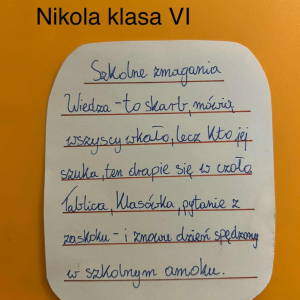 Nikola klasa VI
Szkolne zmagania
Wiedza - to skarb, mówią
wszyscy wkoło, lecz kto jej
szuka, ten drapie się w czoło
Tablica, klasówka, pytanie z
zaskoku - i znowu dzień spędzony
w szkolnym amoku.